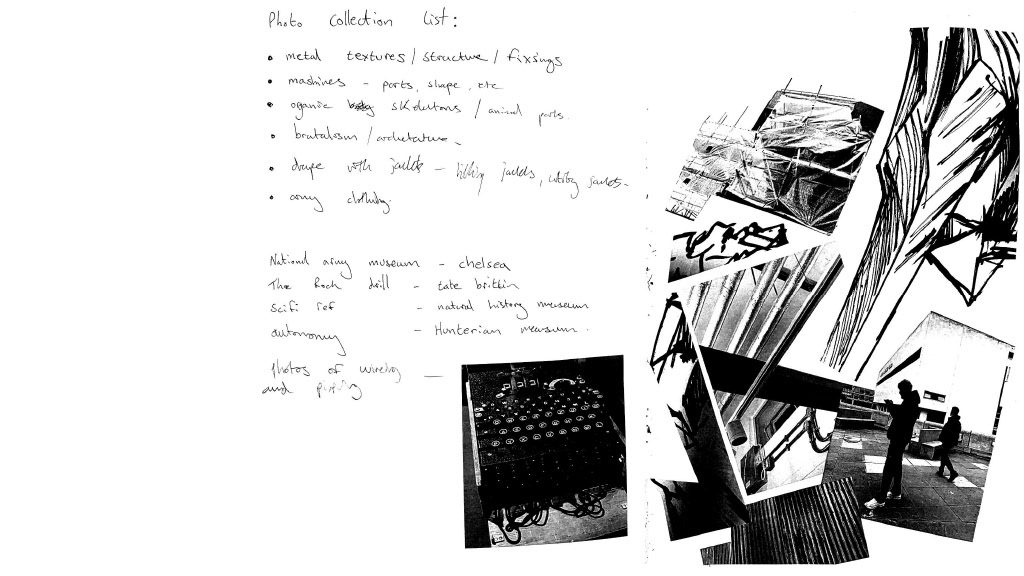 Photo Collection List:
• metal textures / structure / fixings
• machines - parts, shape, etc
• oganic skeletons / animal parts.
• brutalism / architature.
• drape with jackets - jackets, jackets -
• army clothing.
National army museum - chelsea
The Rock drill - tate britain
Scifi ref - natural history museum
autonomy - Hunterian museum.
Photos of wireing —
and pipeing